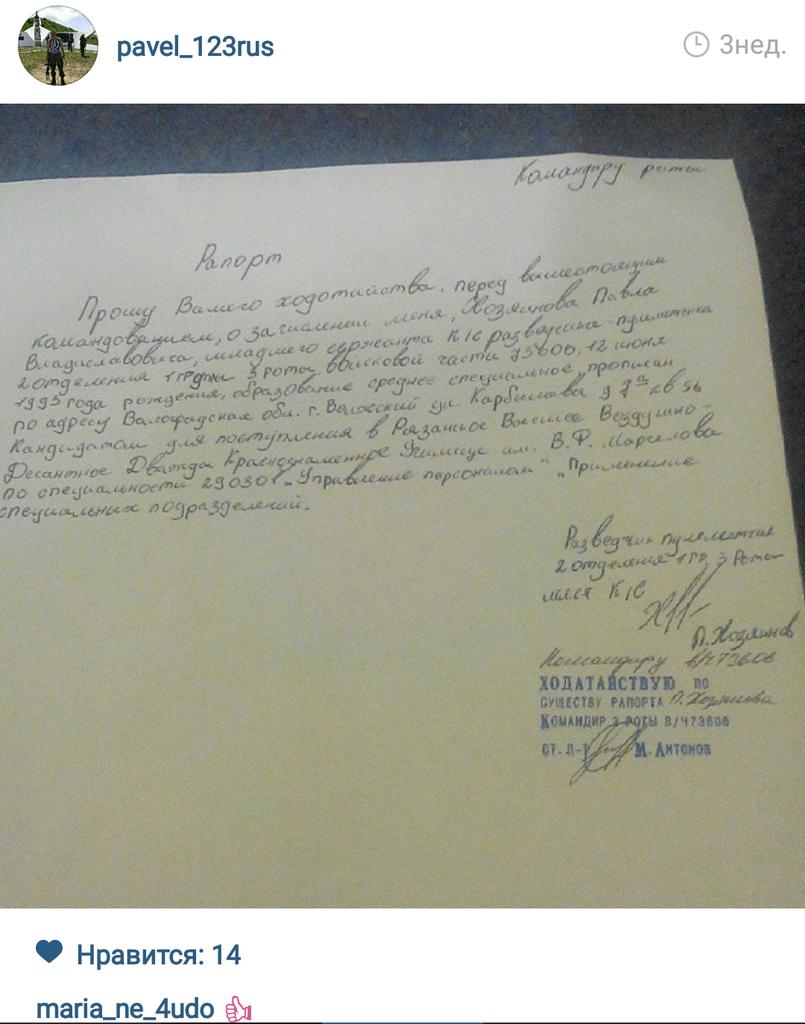 pavel_123rus
3нед.
Командиру роты
Рапорт
Прошу Вашего ходотайства, перед вышестоящим
командованием, о зачислении меня, Хозяинова Павла
Владиславовича, младшего сержанта К/С разведчика-пулемётчика
2 отделения 1 группы 3 роты, войсковой части 73606, 12 июня
1995 года рождения, образование среднее специальное, прописан
по адресу Волгоградская обл. г. Волжский ул. Карбышева д 7а кв 56
Кандидатом для поступления в Рязанское Высшее Воздушно-
Десантное Дважды Краснознаменное Училище им. В.Ф. Маргелова
по специальности "Управление персоналом" "Применение
специальных подразделений.
Разведчик пулеметчик
2 отделения 1 гр. 3 Роты
мл.с-т К/С
П. Хозяинов
Командиру в/ч 73606
ХОДАТАЙСТВУЮ ПО
СУЩЕСТВУ РАПОРТА П. Хозяинова
КОМАНДИР 3 РОТЫ В/Ч73606
СТ. Л-Т М. АНТОНОВ
Нравится: 14
maria_ne_4udo